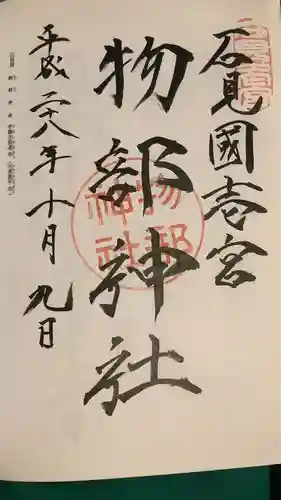 石見國壱宮
物部神社
物部神社
平成二十八年十月九日